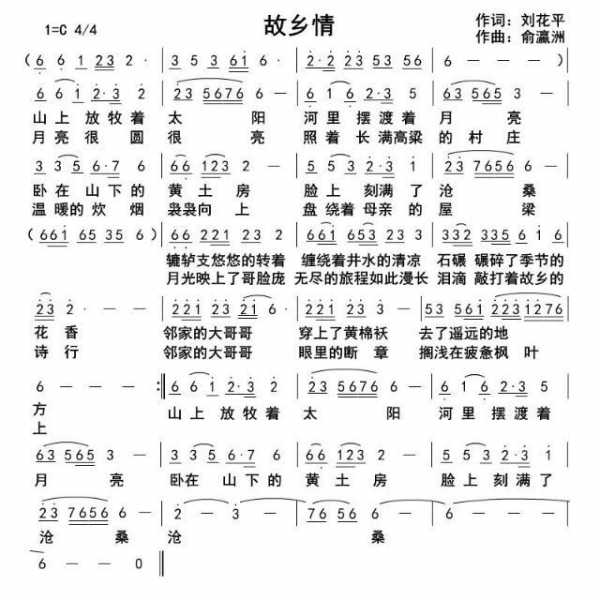 故乡情
1=C 4/4
作词：刘花平
作曲：俞瀛洲
(6 6 1 2 3 2 · | 3 5 3 6 1 6 · | 2 · 2 2 3 5 3 5 6 | 6 — — ) |
6 6 1 2 · 3 2 | 2 3 5 6 7 6 · | 6 1 6 2 · 3 1 | 6 3 5 6 5 3 · |
山上 放牧着 太 阳 河里 摆渡着 月 亮
月亮 很 圆 很 亮 照着 长满高粱 的 村庄
3 3 5 6 · 7 6 | 6 6 1 2 3 · | 5 5 3 2 · 3 1 | 2 3 7 6 5 6 · |
卧在 山下的 黄土房 脸上 刻满了 沧 桑
温暖的 炊烟 袅袅向上 盘绕着母亲的 屋 梁
(6 6 1 6 5 3 5 6) | 6 6 1 2 2 1 2 3 | 6 6 1 6 5 3 2 3 | 3 3 2 3 3 5 6 1 6 |
辘轳支悠悠的转着 缠绕着井水的清凉 石碾 碾碎了季节的
月光映上了哥脸庞 无尽的旅程如此漫长 泪滴 敲打着故乡的
2 3 2 — — | 2 2 1 2 2 3 2 1 6 | 2 2 1 2 3 1 2 · | 5 3 5 6 1 6 2 2 3 1 2 7 6 |
花香 邻家的大哥哥 穿上了黄棉袄 去了遥远的地
诗行 邻家的大哥哥 眼里的断 章 搁浅在疲惫枫 叶
6 — — : | 6 6 1 2 · 3 2 | 2 3 5 6 7 6 · | 6 1 6 2 · 3 1 |
方 山上 放牧着 太 阳 河里 摆渡着
上
6 3 5 6 5 3 · | 3 3 5 6 · 7 6 | 6 6 1 2 3 · | 5 5 3 2 · 3 1 |
月 亮 卧在 山下的 黄土房 脸上 刻满了
2 3 7 6 5 6 · | 2 — 3 — | 7 6 5 6 · | 6 — — — |
沧 桑 沧 桑
6 — — 0 |